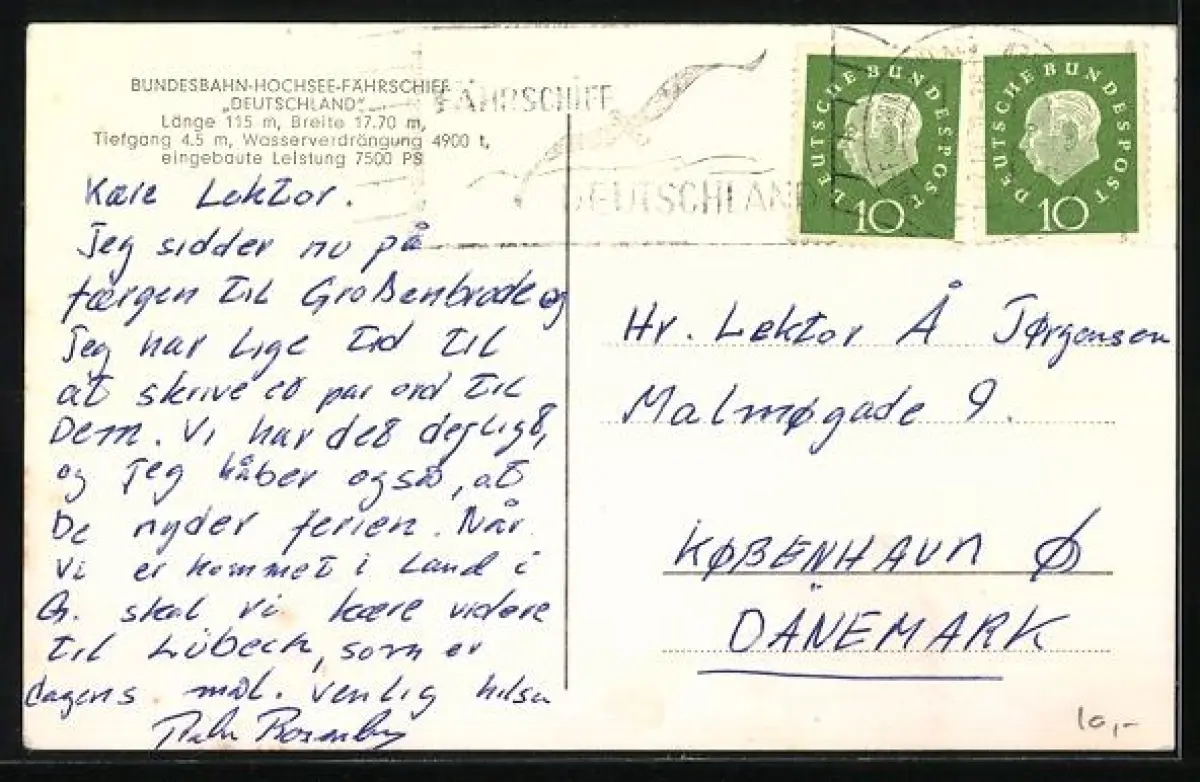 BUNDESBAHN-HOCHSEE-FÄHRSCHIFF
„DEUTSCHLAND“
Länge 115 m, Breite 17.70 m,
Tiefgang 4.5 m, Wasserverdrängung 4900 t,
eingebaute Leistung 7500 PS
Kære Lektor.
Jeg sidder nu på
færgen til Großenbrode og
jeg har lige tid til
at skrive et par ord til
Dem. Vi har det dejligt,
og jeg håber også, at
De nyder ferien. Når
vi er kommet i land i
G. skal vi køre videre
til Lübeck, som er
dagens mål. Venlig hilsen
FÄHRSCHIFF
DEUTSCHLAND
DEUTSCHE BUNDESPOST
10
DEUTSCHE BUNDESPOST
10
Hr. Lektor Å Jørgensen
Malmøgade 9.
KØBENHAVN Ø
DÄNEMARK
10,-